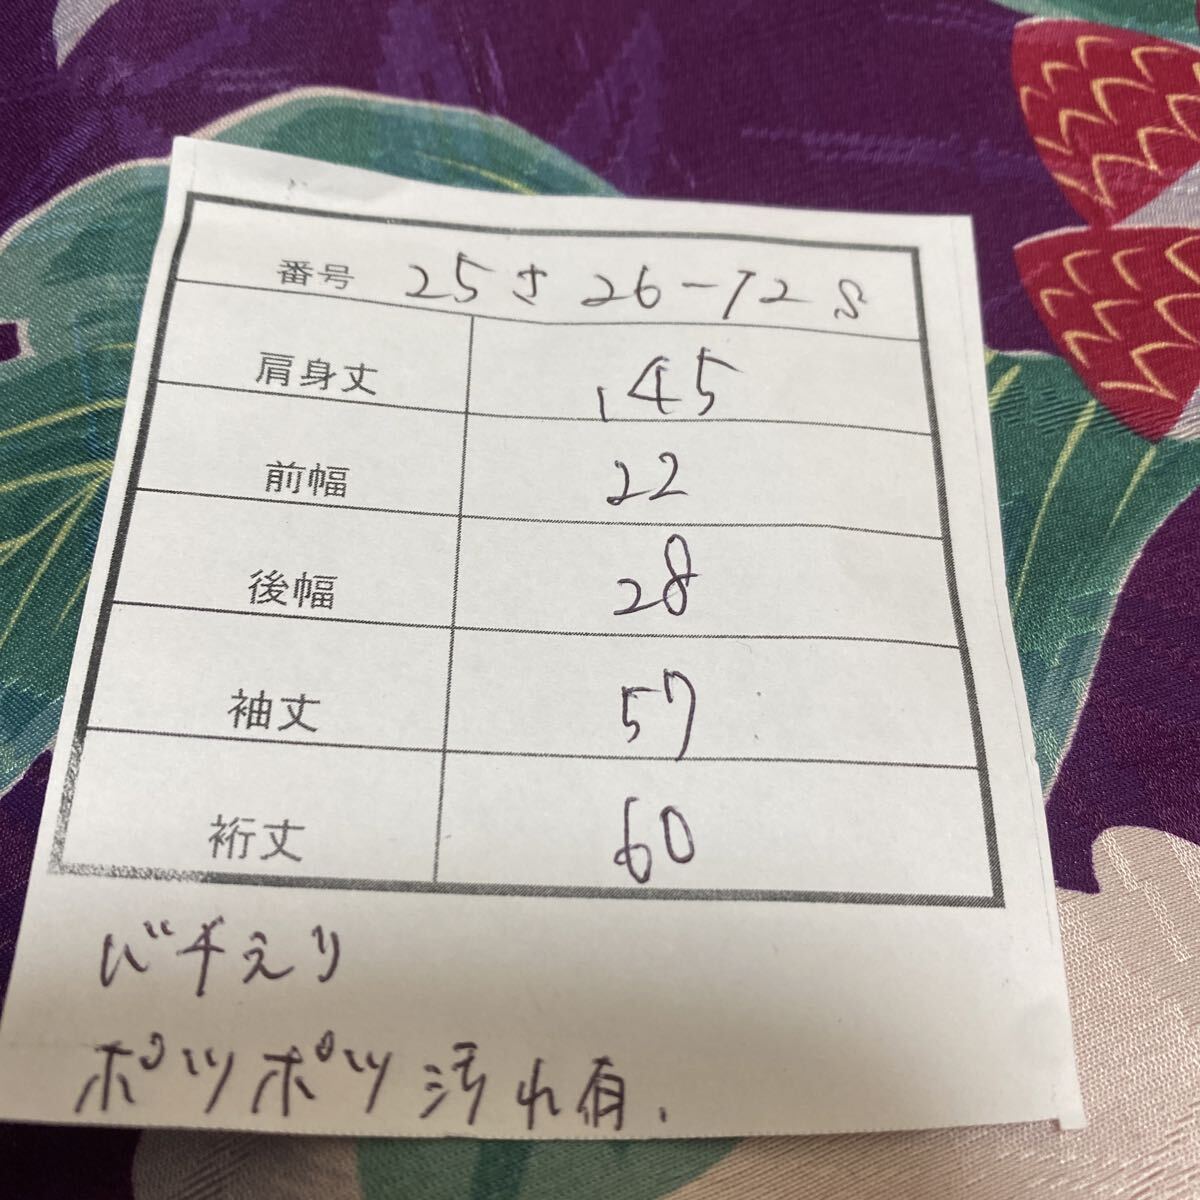 番号 25さ26-72 S
肩身丈 145
前幅 22
後幅 28
袖丈 57
裄丈 60
バチえり
ポツポツ汚れ有.